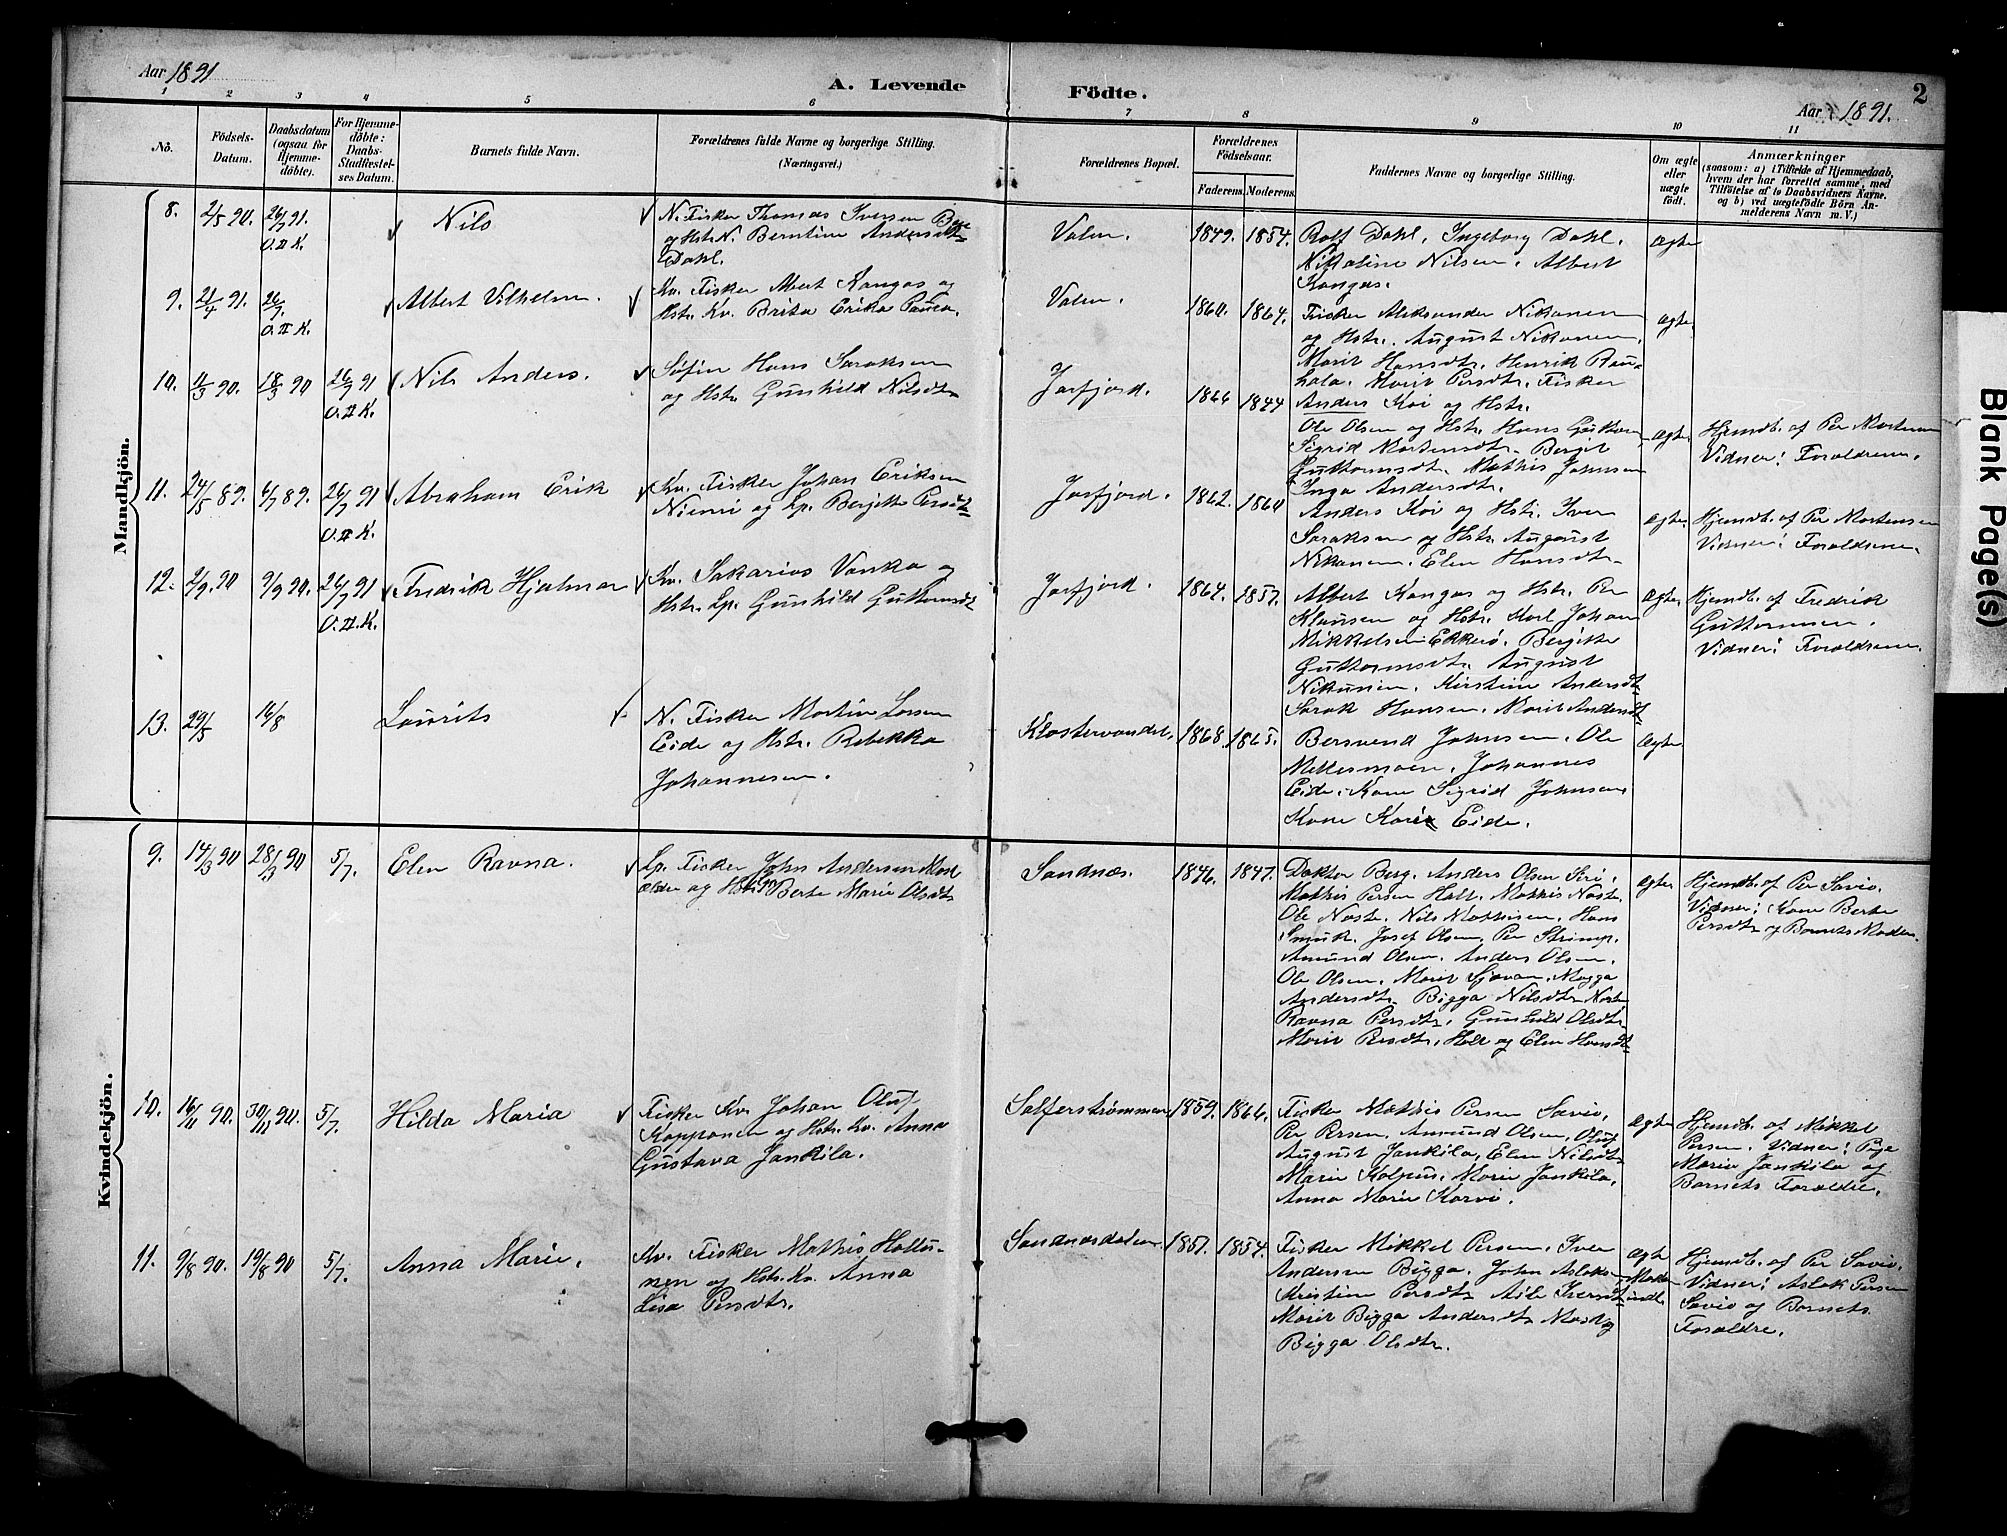 Aar 1891
A. Levende Födte.
Aar 1891.
2
1 2 3 4 5 6 7 8 9 10 11
No.
Födsels-Datum.
Daabsdatum (ogsaa for Hjemme-döbte).
For Hjemme-döbte: Daabs-Stadfæstel-ses Datum.
Barnets fulde Navn.
Forældrenes fulde Navne og borgerlige Stilling.
(Næringsvei.)
Forældrenes Bopæl.
Forældrenes Födselsaar.
Faderens. Moderens.
Faddernes Navne og borgerlige Stilling.
Om ægte eller uægte födt.
Anmærkninger
(saasom: a) i Tilfælde af Hjemmedaab,
hvem der har forrettet samme, med
Tilföielse af to Daabsvidners Navne.
og b) ved uægtefödte Börn An-
melderens Navn m. V.)
Mandkjön.
8. 2/5 90. 26/7 91. O.II K.
Nils
N. Fisker Thomas Iversen
og Hstr. N. Berntine Andersdtr
Dahl.
Valen.
1849. 1854.
Rolf Dahl, Ingeborg Dahl,
Nikoline Nilsen, Albert
Kangas.
Ægte
9. 2/4 91. 26/7. O.II K.
Albert Vilhelm.
Kv. Fisker Albert Kangas og
Hstr. Kv. Brita Erika
Valen.
1860. 1864.
Fisker Aleksander Nikanen
og Hstr. August Nikanen,
Marit Hansdtr. Henrik Rau-
hala. Marit Persdtr. Fisker
Anders Koi og Hstr.
Ægte
10. 11/3 90. 18/3 90 26/7 91 O.II K.
Nils Anders.
Søfin Hans Saraksen
og Hstr. Gunhild Nilsdtr
Jarfjord.
1866 1844
Ole Olsen og Hstr. Hans Guttorm
Sigrid Mortensdtr. Bergit
Guttormsdtr. Mathis Johnsen
Inga Andersdtr.
Ægte
Hjemdb. af Per Mortensen
Vidner: Forældrene.
11. 24/5 89. 6/7 89. 26/7 91 O.II K.
Abraham Erik
Kv. Fisker Johan Eriksen
Niemi og Lp. Bergitte Persdtr
Jarfjord.
1862. 1860
Anders Koi og Hstr. Iver
Saraksen og Hstr. August
Nikanen. Elen Hansdtr.
Ægte
Hjemdb. af Per Mortensen
Vidner: Forældrene.
12. 2/9 90 9/9 90. 26/7 91 O.II.K.
Fredrik Hjalmar
Kv. Sakarias Vanka og
Hstr. Lp. Gunhild Guttormsdtr
Jarfjord.
1864. 1857.
Albert Kangas og Hstr. Per
Klausen og Hstr. Karl Johan
Mikkelsen Ekkerö. Bergitte
Guttormsdtr. August
Nikanen. Kirstine Andersdtr
Sarak Hansen. Marit Andersdtr
Ægte
Hjemdb. af Fredrik
Guttormsen.
Vidner: Forældrene.
13. 29/5 16/8
Laurits
N. Fisker Martin Larsen
Eide og Hstr. Rebekka
Johannesen.
Klostervandet.
1868 1865.
Bersvend Johnsen. Ole
Mellemoen. Johannes
Eide. Kone Sigrid Johnsen
Kone Kari Eide.
Ægte
Kvindekjön.
9. 14/3 90 28/3 90 5/7.
Elen Ravna.
Lp. Fisker John Andersen
og Hstr. Berte Marie Olsdtr
Sandnæs.
1846. 1847.
Doktor Berg. Anders Olsen Siri.
Mathis Persen Halt. Mathis Naste.
Ole Naste. Nils Mathisen. Hans
Smuk. Josef Olsen. Per Strimp.
Amund Olsen. Anders Olsen.
Ole Olsen. Marit Sjavan. Magga
Andersdtr. Bigga Nilsdtr Naste
Ravna Persdtr. Gunhild Olsdtr.
Marit Persdtr. Halt og Elen Hansdtr
Ægte
Hjemdb. af Per Savio.
Vidner: Kone Berte
Persdtr og Barnets Moder.
10. 16/11 90. 30/11 90. 5/7.
Hilda Maria
Fisker Kv. Johan Oluf
Kapponen og Hstr. Kv. Anna
Gustava Jankila.
Salferstrømmen
1859. 1866.
Fisker Mathis Persen Savio.
Per Persen. Amund Olsen. Oluf
August Jankila, Elen Nilsdtr
Marie Kolpus. Marie Jankila,
Anna Marie Karvi.
Ægte
Hjemdb. af Mikkel
Persen. Vidner: Pige
Marie Jankila og
Barnets Forældre.
11. 9/8 90. 19/8 90 5/7.
Anna Marie.
Kv. Fisker Mathis Hallu-
nen og Hstr. Kv. Anna
Lisa Persdtr.
Sandnæsdalen
1857. 1854.
Fisker Mikkel Persen. Iver
Andersen Bigga. John Aslaksen
Kristine Persdtr. Aile Iversdtr
Marit Bigga Andersdtr Mask og
Bigga Olsdtr.
ægte
Hjemdb. af Per Savio.
Vidner: Aslak Persen
Savio og Barnets
Forældre.
Blank Page(s)